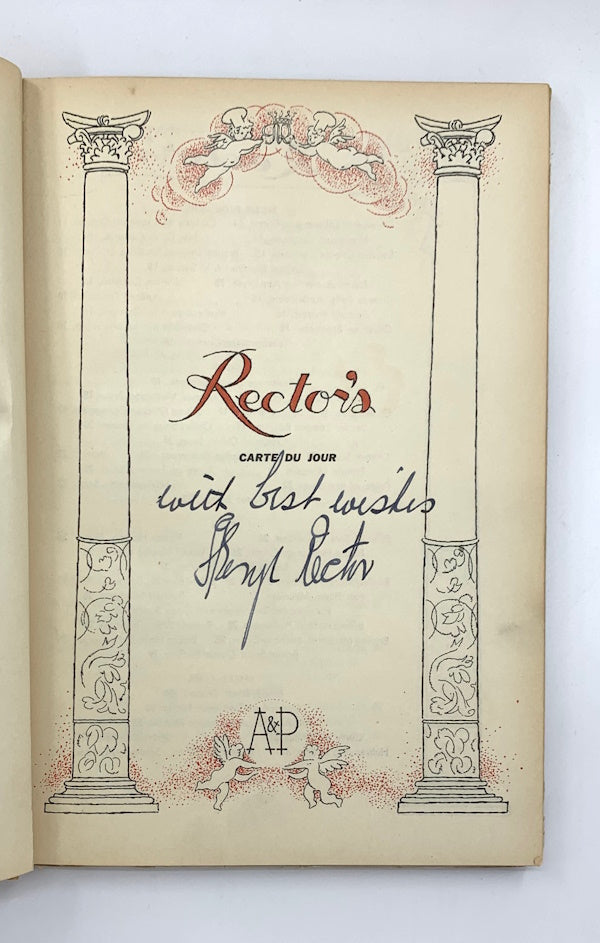 Rector's
CARTE DU JOUR
with best wishes
Rector
A&P